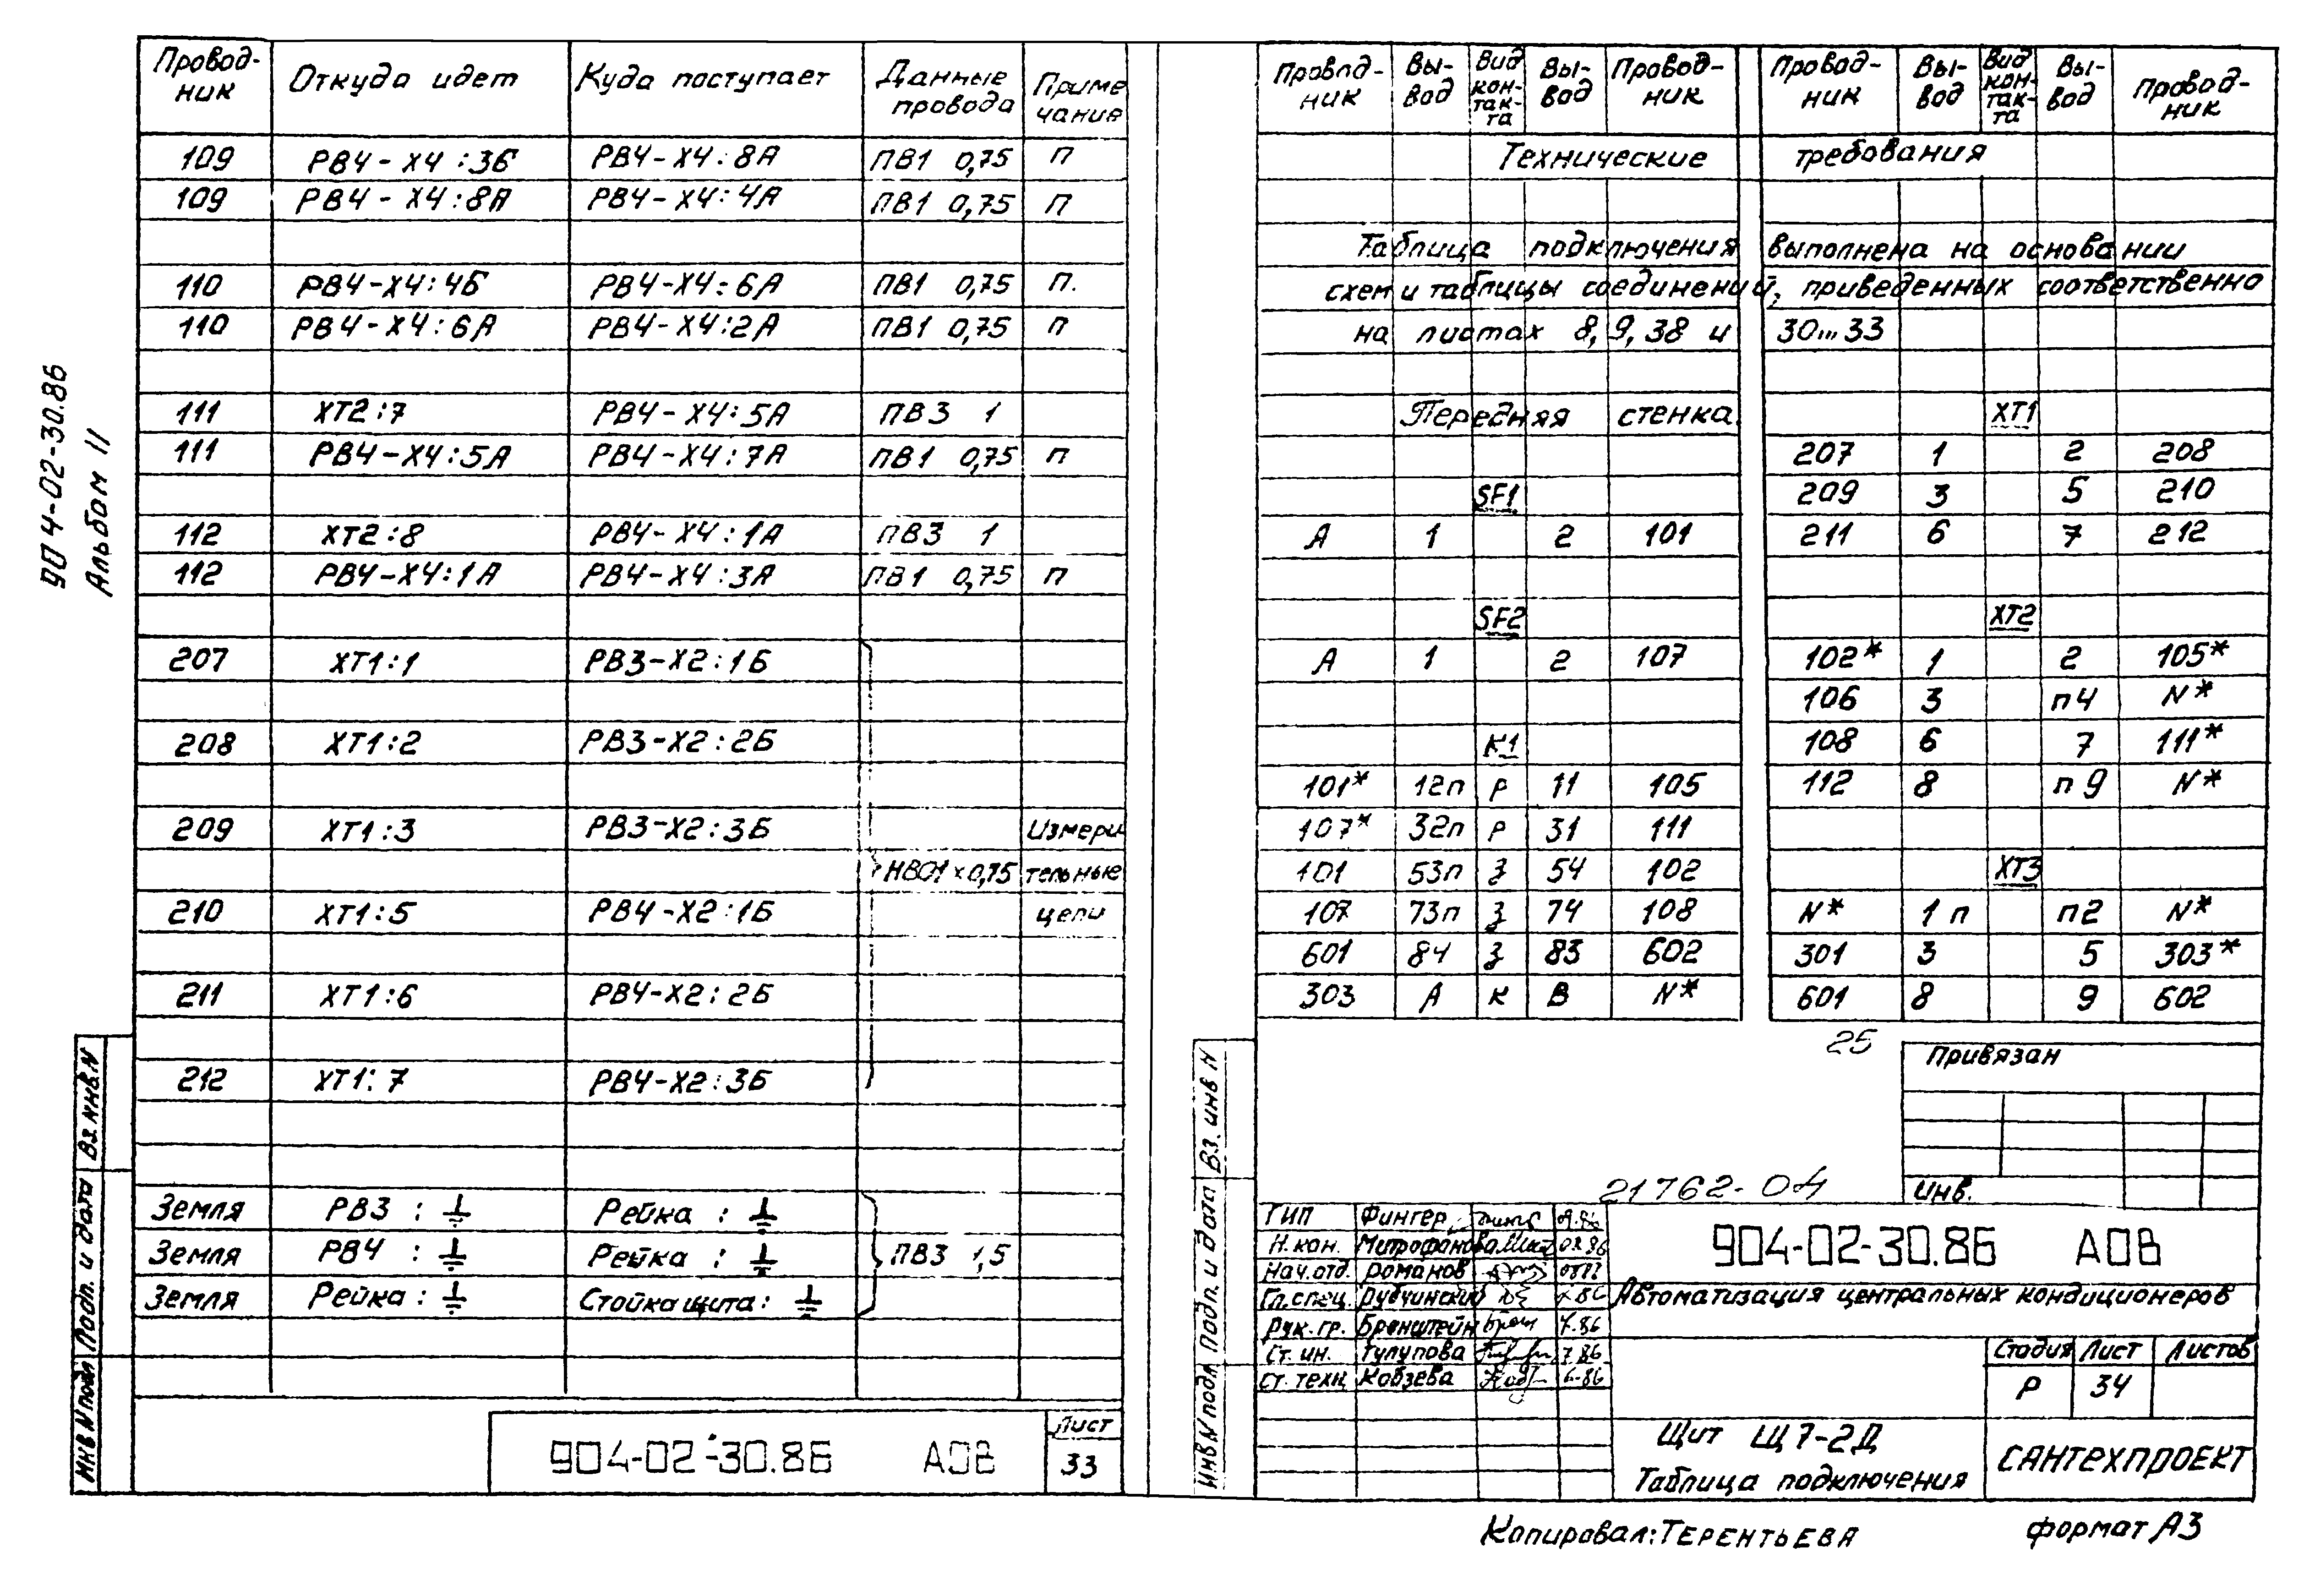 904-02-30.86
Альбом II
Провод-ник Откуда идет Куда поступает Данные провода Примечание
109 РВ4-Х4:3Б РВ4-Х4:8А ПВ1 0,75 П
109 РВ4-Х4:8А РВ4-Х4:4А ПВ1 0,75 П
110 РВ4-Х4:4Б РВ4-Х4:6А ПВ1 0,75 П.
110 РВ4-Х4:6А РВ4-Х4:2А ПВ1 0,75 П
111 ХТ2:7 РВ4-Х4:5А ПВ3 1
111 РВ4-Х4:5А РВ4-Х4:7А ПВ1 0,75 П
112 ХТ2:8 РВ4-Х4:1А ПВ3 1
112 РВ4-Х4:1А РВ4-Х4:3А ПВ1 0,75 П
207 ХТ1:1 РВ3-Х2:1Б
208 ХТ1:2 РВ3-Х2:2Б
209 ХТ1:3 РВ3-Х2:3Б Измери
НВ01×0,75 тельные
210 ХТ1:5 РВ4-Х2:1Б цепи
211 ХТ1:6 РВ4-Х2:2Б
212 ХТ1:7 РВ4-Х2:3Б
Земля РВ3 : ⏚ Рейка : ⏚
Земля РВ4 : ⏚ Рейка : ⏚ ПВ3 1,5
Земля Рейка : ⏚ Стойка щита: ⏚
904-02-30.86 АОВ
Лист
33
Инв N подл Подп. и дата Вз инв N
Провод-ник Вы-вод Вид кон-так-та Вы-вод Провод-ник Провод-ник Вы-вод Вид кон-так-та Вы-вод Провод-ник
Технические требования
Таблица подключения выполнена на основании
схем и таблицы соединений, приведенных соответственно
на листах 8, 9, 38 и 30...33
Передняя стенка ХТ1
207 1 2 208
SF1 209 3 5 210
А 1 2 101 211 6 7 212
SF2 ХТ2
А 1 2 107 102* 1 2 105*
106 3 п4 N*
К1 108 6 7 111*
101* 12п Р 11 105 112 8 п9 N*
107* 32п Р 31 111
101 53п З 54 102 ХТ3
107 73п З 74 108 N* 1п п2 N*
601 84 З 83 602 301 3 5 303*
303 А К В N* 601 8 9 602
25
Привязан
Инв.
21762-04
Инв N подл Подп. и дата Вз. инв N
ГИП Фингер 09.86
Н.кон. Митрофанова
Нач.отд. Романов
Гл.спец Рубчинский
Рук.гр. Бронштейн 7.86
Ст. ин. Тулупова 7.86
Ст. техн Кобзева 6-86
904-02-30.86 АОВ
Автоматизация центральных кондиционеров
Стадия Лист Листов
Р 34
Щит Щ7-2Д
Таблица подключения
САНТЕХПРОЕКТ
Копировал: ТЕРЕНТЬЕВА
формат А3